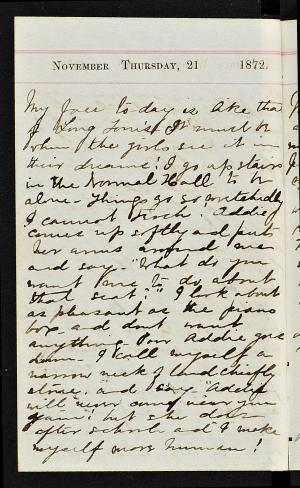 November Thursday, 21 1872.
My face to-day is like that
of Long Louis! It must be
when the girls see it in
their dreams! I go up stairs
in the Normal Hall to be
alone - Things go so wretchedly
I cannot teach! Addie
comes up softly and puts
her arms around me
and says - "What do you
want me to do about
that seat?" I look about
as pleasant as the piano
box and dont want
anything Poor Addie goes
down - I call myself a
narrow neck of land chiefly
stone, and say "Addie
will never come near you
again"! but she does
after school and I make
myself more human!